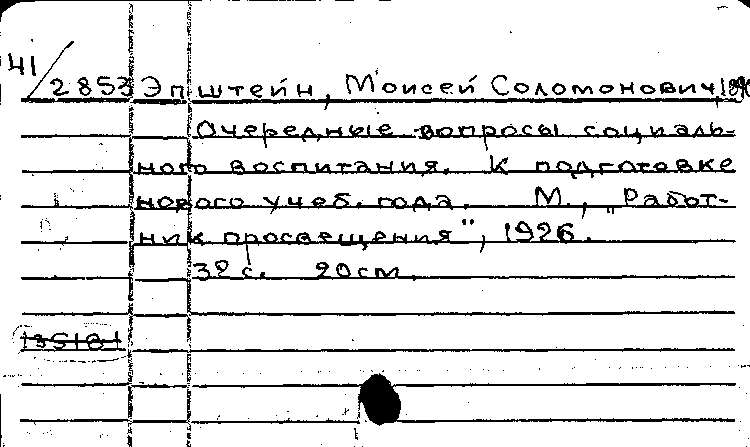 41/2853 Эпштейн, Моисей Соломонович, 1890
Очередные вопросы социаль-
ного воспитания. К подготовке
нового учеб. года. М., „Работ-
ник просвещения", 1926.
32 с. 20 см.
135181